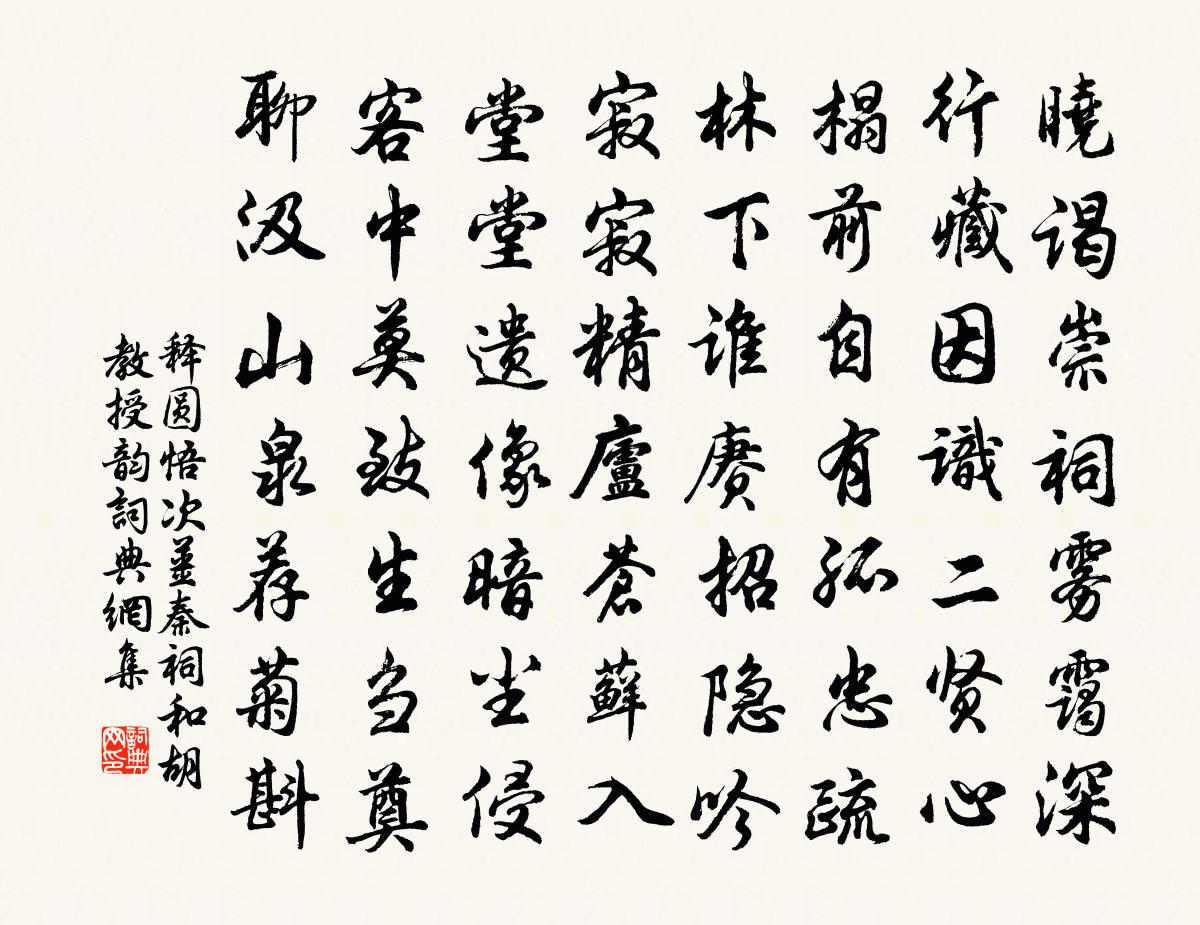 曉谒崇祠雾靄深
行藏因識二贤心
榻前自有孤忠疏
林下谁赓招隐吟
寂寂精廬苍蘚入
堂堂遗像暗尘侵
客中莫致生刍奠
聊汲山泉荐菊斟
释圆悟次姜秦祠和胡
教授韵詞典網集
詞典网印